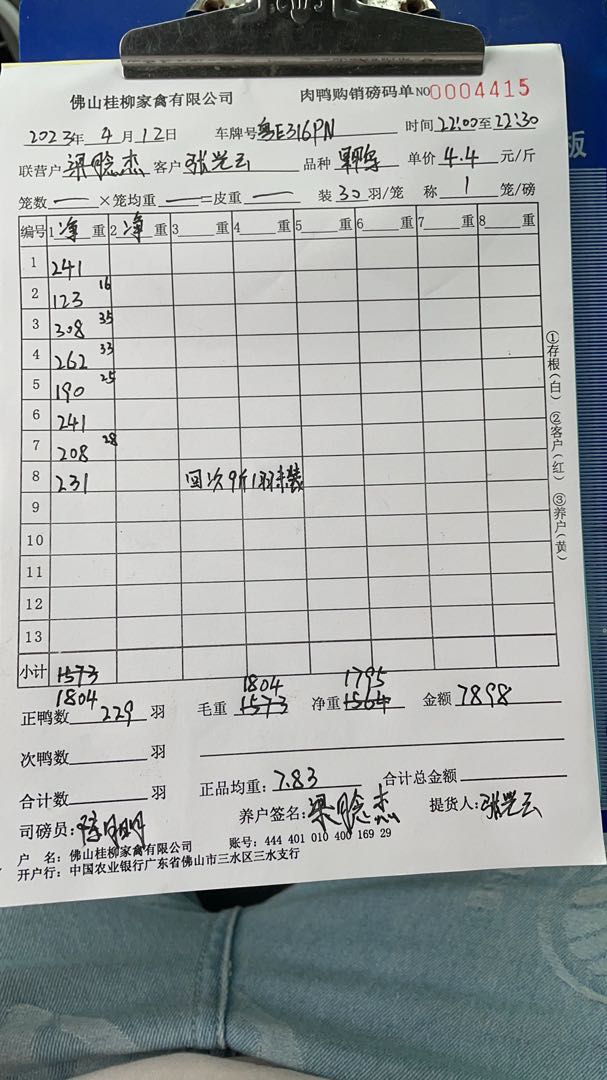 佛山桂柳家禽有限公司 肉鸭购销磅码单 NO 0004415
2023年 4 月 12日 车牌号 粤E316PN 时间 22:00至22:30
联营户 梁 杰 客户 张 云 品种 单价 4.4 元/斤
笼数 — ×笼均重 — =皮重 — 装 30 羽/笼 称 1 笼/磅
编号 1 净 重 2 净 重 3 重 4 重 5 重 6 重 7 重 8 重
1 241
2 123 16
3 308 35
4 262 33
5 190 25
6 241
7 208 28
8 231 回次9斤1羽未装
9
10
11
12
13
小计 1573
1804 1804 1795
正鸭数 229 羽 毛重 1573 净重 1564 金额 7898
次鸭数 羽
合计数 羽 正品均重: 7.83 合计总金额
司磅员: 明 养户签名: 梁 杰 提货人: 张 云
户 名: 佛山桂柳家禽有限公司 账号: 444 401 010 400 169 29
开户行: 中国农业银行广东省佛山市三水区三水支行
①存根(白) ②客户(红) ③养户(黄)
板